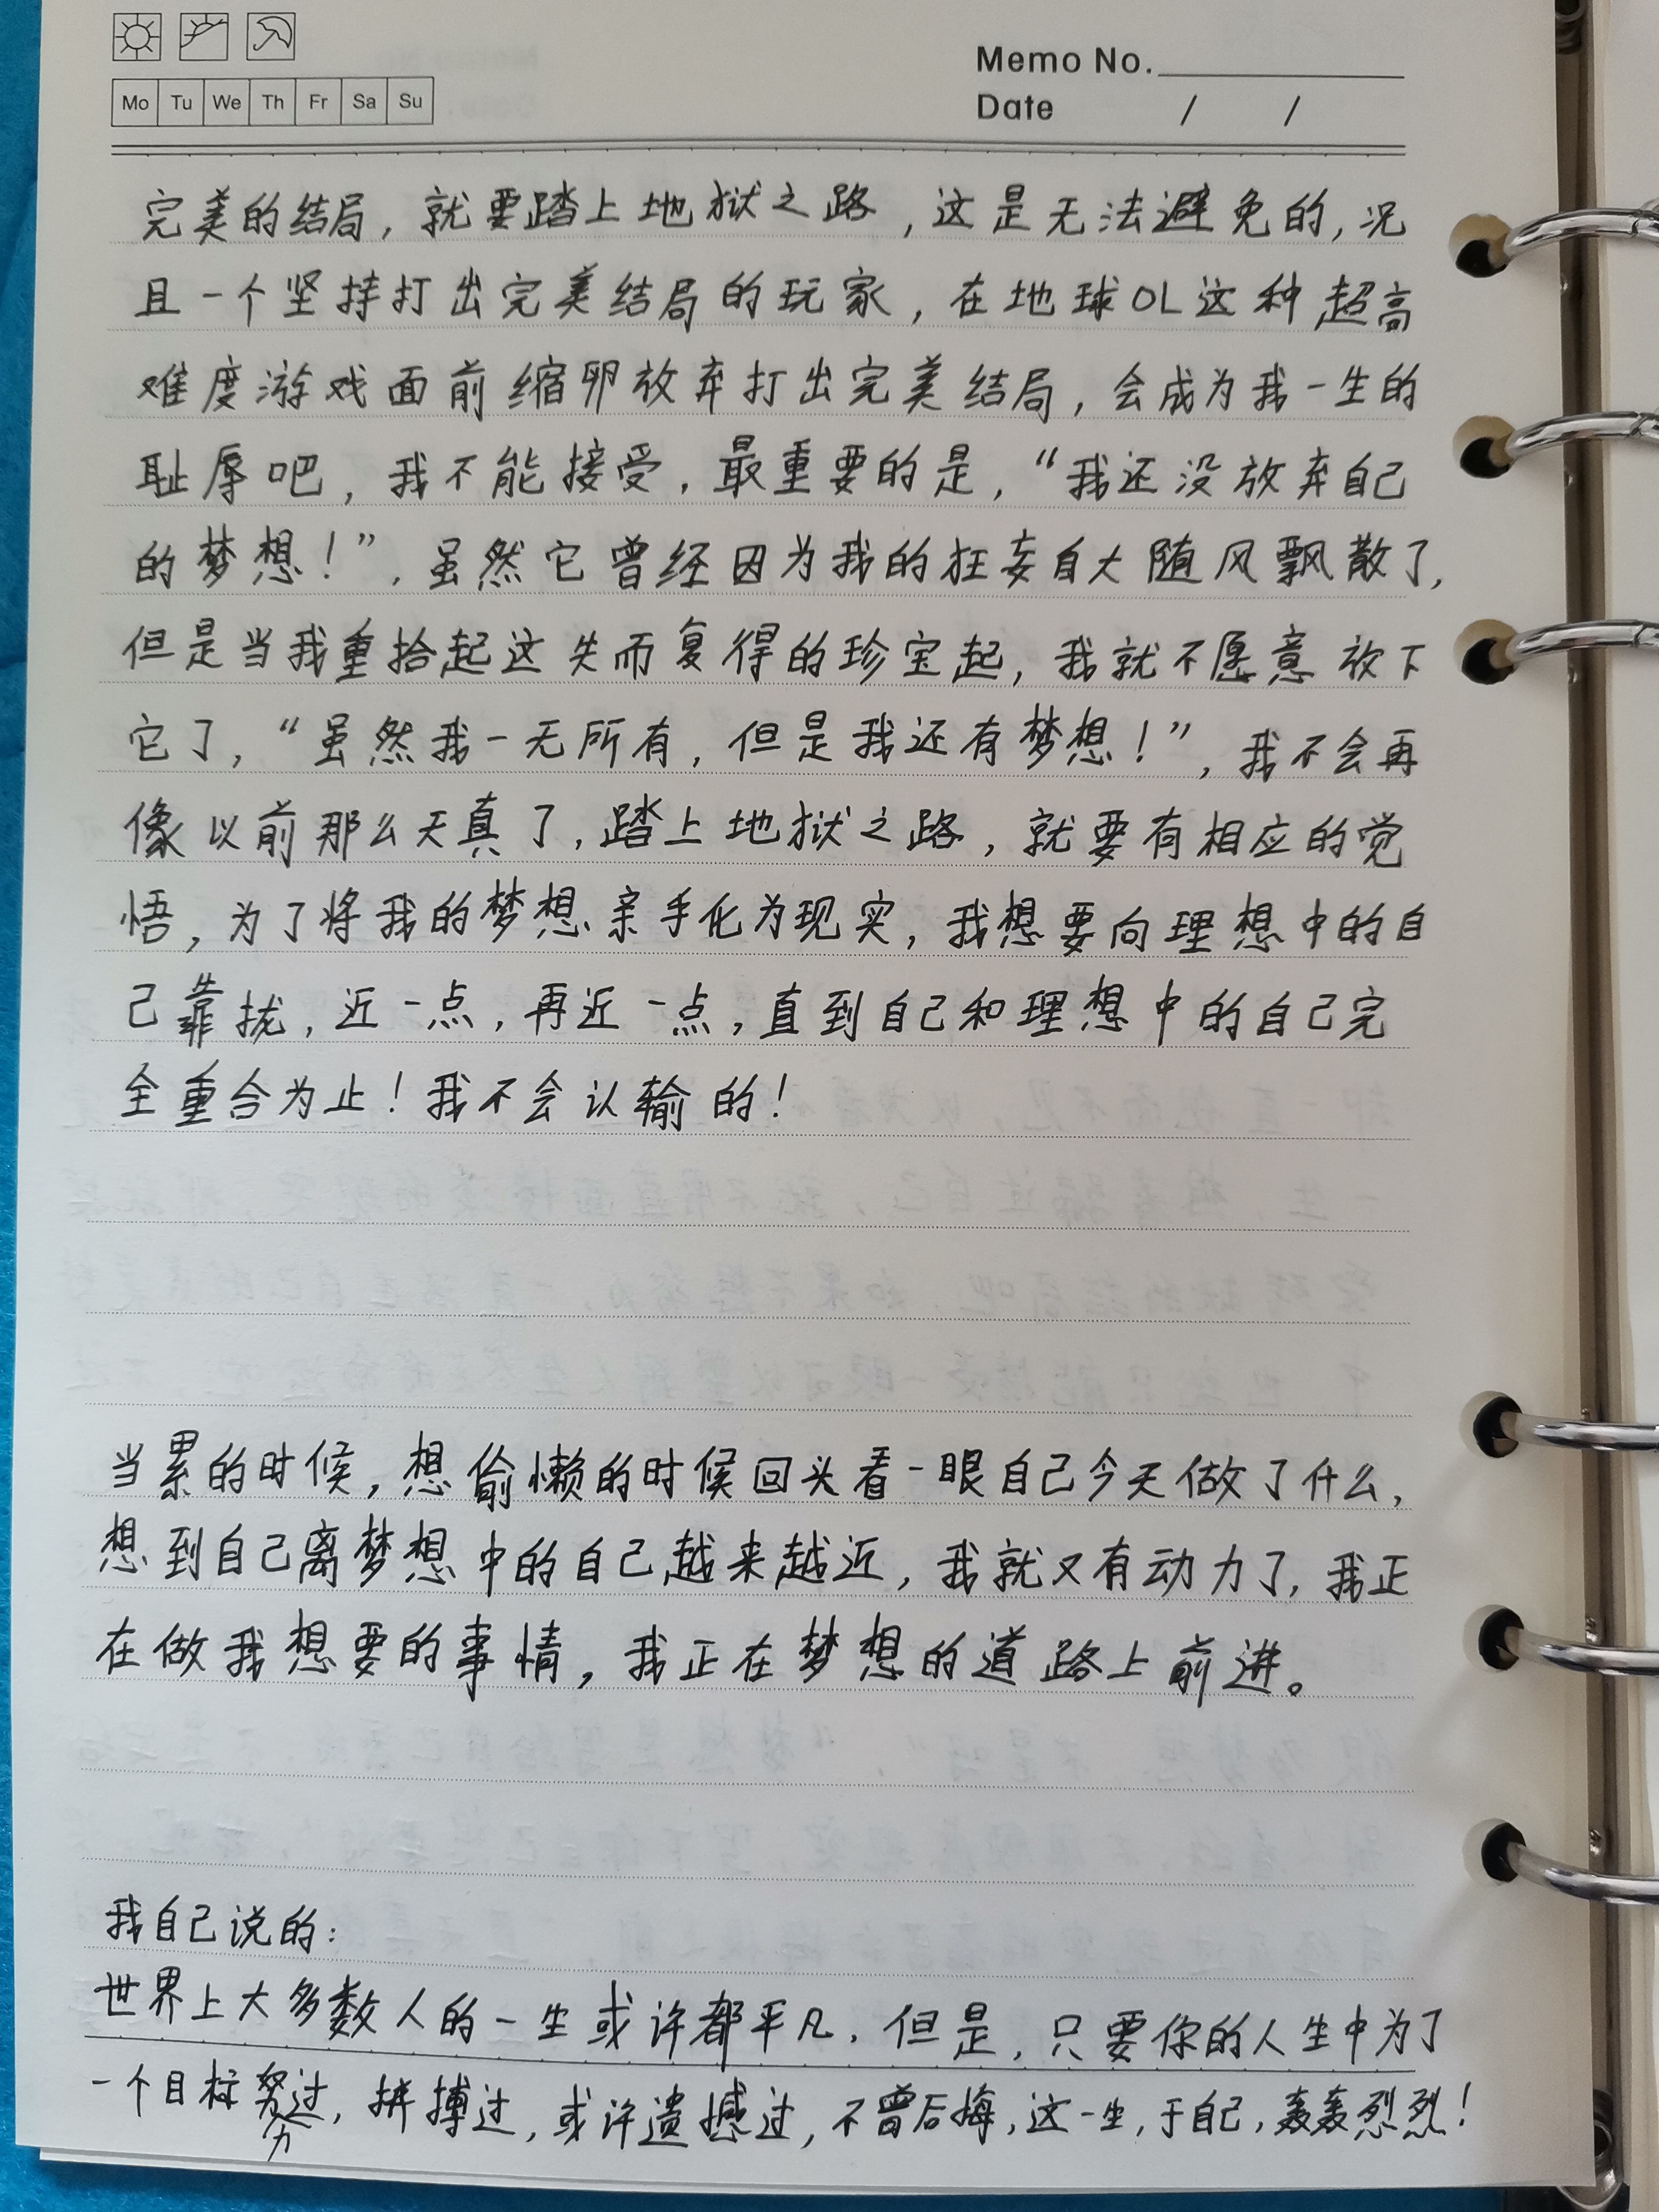 Memo No.
Mo Tu We Th Fr Sa Su
Date / /
完美的结局，就要踏上地狱之路，这是无法避免的，况
且一个坚持打出完美结局的玩家，在地球OL这种超高
难度游戏面前缩卵放弃打出完美结局，会成为我一生的
耻辱吧，我不能接受，最重要的是，“我还没放弃自己
的梦想！”，虽然它曾经因为我的狂妄自大随风飘散了，
但是当我重拾起这失而复得的珍宝起，我就不愿意放下
它了，“虽然我一无所有，但是我还有梦想！”，我不会再
像以前那么天真了，踏上地狱之路，就要有相应的觉
悟，为了将我的梦想亲手化为现实，我想要向理想中的自
己靠拢，近一点，再近一点，直到自己和理想中的自己完
全重合为止！我不会认输的！
当累的时候，想偷懒的时候回头看一眼自己今天做了什么，
想到自己离梦想中的自己越来越近，我就又有动力了，我正
在做我想要的事情，我正在梦想的道路上前进。
我自己说的：
世界上大多数人的一生或许都平凡，但是，只要你的人生中为了
一个目标努过，拼搏过，或许遗憾过，不曾后悔，这一生，于自己，轰轰烈烈！
力